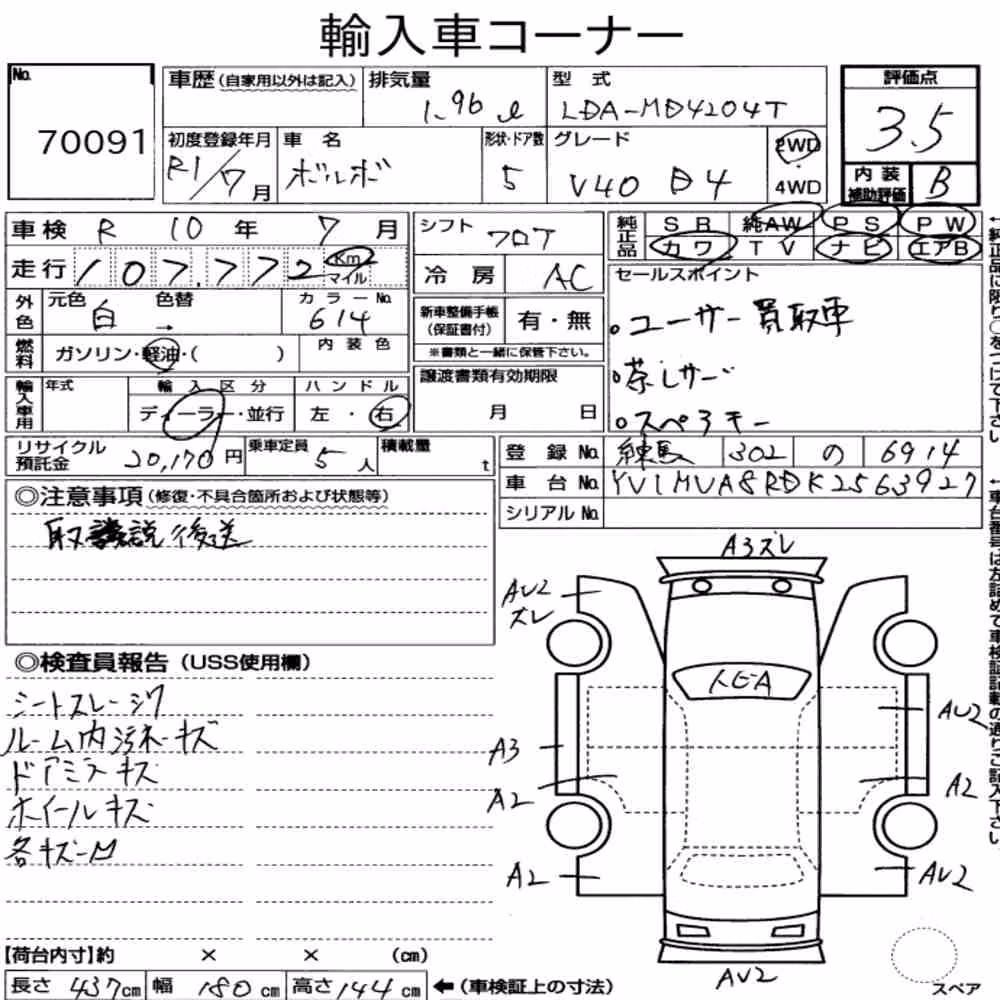 輸入車コーナー
No. 70091
車歴 (自家用以外は記入)
排気量 1.96 ℓ
型式 LDA-MD4204T
評価点 3.5
初度登録年月 R1/7月
車名 ボルボ
形状・ドア数 5
グレード V40 D4
2WD
4WD
内装補助評価 B
車検 R 10年 7月
シフト フロT
純正品 SR 純AW PS PW
カワ TV ナビ エアB
走行 107,772 Km マイル
冷房 AC
セールスポイント
外色 元色 白 色替 → カラーNo. 614
新車整備手帳(保証書付) 有・無
。ユーザー買取車
燃料 ガソリン・軽油・( )
内装色
※書類と一緒に保管下さい。
輸入車用 年式 輸入区分 ディーラー・並行 ハンドル 左・右
譲渡書類有効期限 月 日
。スペアキー
リサイクル預託金 20,170円
乗車定員 5人
積載量 t
登録No. 練馬 302 の 6914
車台No. YV1MVA8RDK2563927
シリアルNo.
◎注意事項 (修復・不具合箇所および状態等)
後送
◎検査員報告 (USS使用欄)
シートスレ
ルーム内汚れキズ
ドアミラーキズ
ホイールキズ
A3ズレ
AU2
ズレ
A3
A2
A2
AU2
A2
AU2
AU2
スペア
【荷台内寸】約 × × (cm)
長さ 437cm 幅 180cm 高さ 144cm ←(車検証上の寸法)
←純正品に限り○をつけて下さい
←車台番号は左詰めで車検証記載の通りご記入下さい。